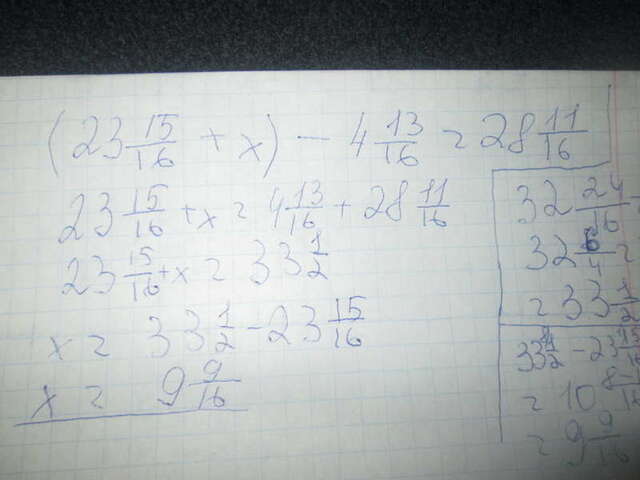 (23 15/16 + x) - 4 13/16 = 28 11/16
23 15/16 + x = 4 13/16 + 28 11/16
23 15/16 + x = 33 1/2
x = 33 1/2 - 23 15/16
x = 9 9/16
32 24/16 =
32 6/4 =
= 33 1/2
33 1/2 - 23 15/16
= 10
= 9 9/16